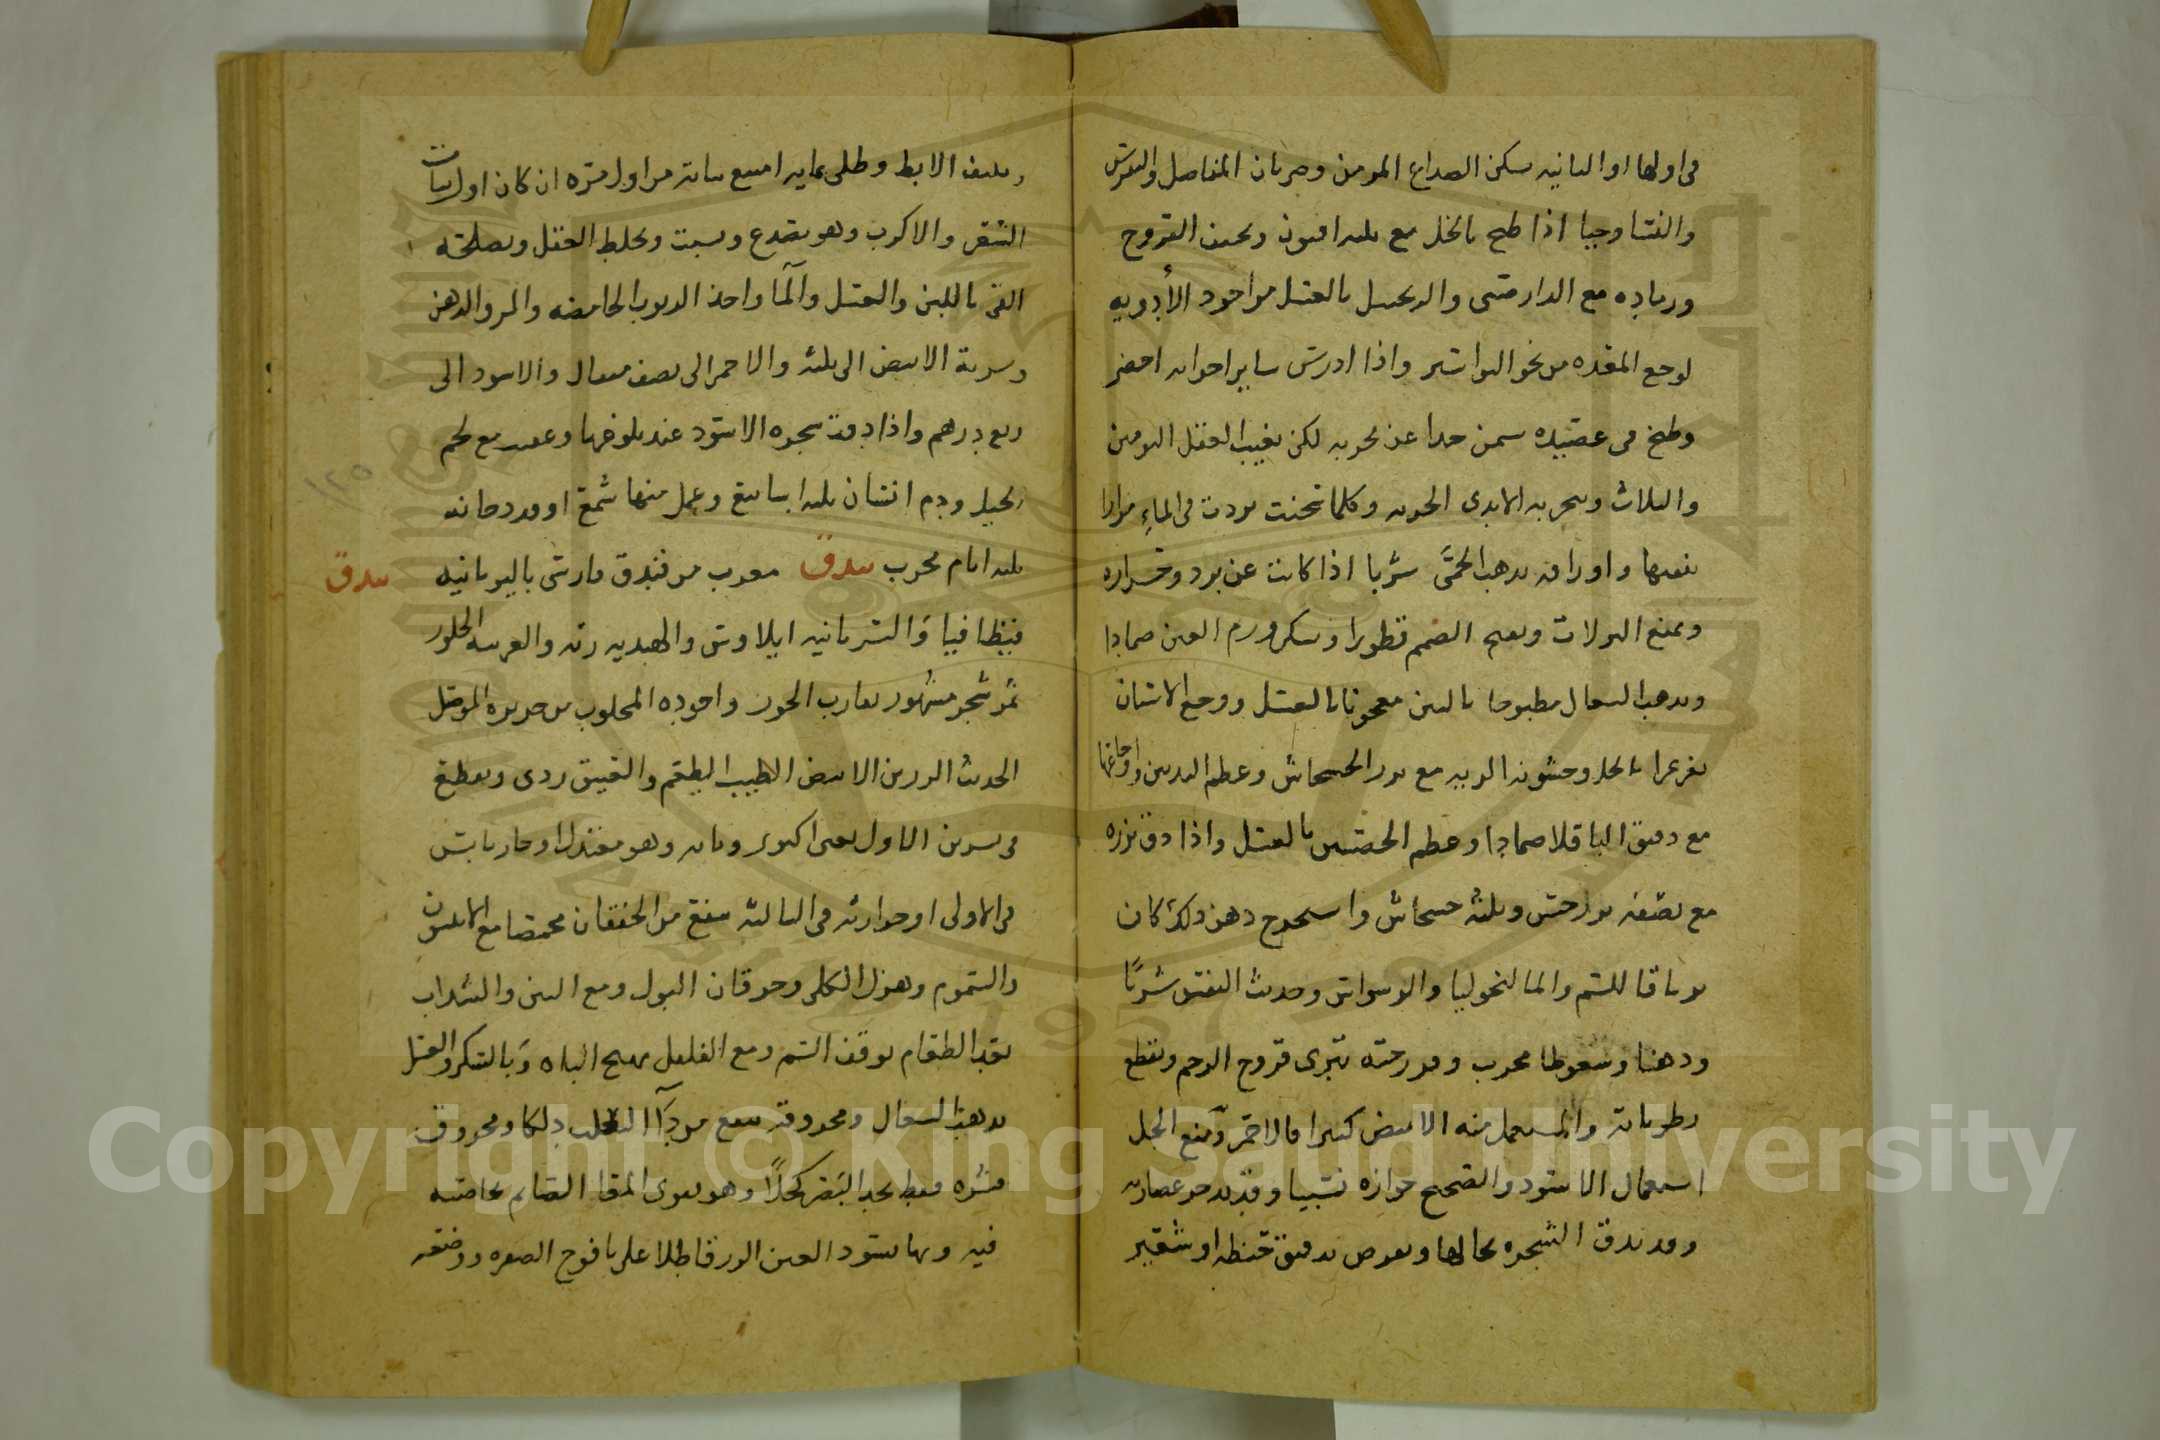 فى اولها او الثانيه يسكن الصداع المزمن وضربان المفاصل والنقرس
والنسا وحيا اذا طبخ بالخل مع ثلثه افيون ويجفف القروح
ورماده مع الدارصينى والزنجبيل بالعسل من اجود الأدويه
لوجع المقعده من نحو البواسير واذا سائر اجزائه اخضر
وطبخ فى عصيده سمن جدا عن تجربه لكن يغيب العقل اليومين
والثلاث وكلما سخنت بردت فى الماء مرارا
واوراقه يذهب الحمى شربا اذا كانت عن برد وحراره
ويمنع النزلات ويفتح الصمم قطورا ويسكن ورم العين ضمادا
ويذهب السعال مطبوخا بالتين معجونا بالعسل ووجع الاسنان
تغرغرا بالخل وخشونه الريه مع بزر الخشخاش وعظم الثديين واوجاعها
مع دقيق الباقلا ضمادا وعظم الخصيتين بالعسل واذا دق بزره
مع نصفه بزر خس وثلثه خشخاش واستخرج دهن ذلك كان
ترياقا للسم والمالنخوليا والوسواس وحديث النفس شربًا
ودهنا وسعوطا مجرب وفرزجته تبرى قروح الرحم وتقطع
رطوباته والمستعمل منه الابيض كثيرا فالاحمر ومنع الجل
استعمال الاسود والصحيح جوازه نسبيا وقد يدخر عصاره
وقد تدق الشجره بحالها وتقرص بدقيق حنطه او شعير
ونتف الابط وطلى بمائه امتنع نباته من اول مره ان كان اول نبات
الشعر والاكرب وهو يصدع ويسبت ويخلط العقل ويصلحه
القى باللبن والعسل والما واخذ الربوب الحامضه والمر والدهن
وشربة الابيض الى ثلثه والاحمر الى نصف مثقال والاسود الى
ربع درهم واذا دقت شجره الاسود عند بلوغها وعفنت مع لحم
الخيل ودم انسان ثلثه اسابيع وعمل منها شمع او
ثلثه ايام مجرب بندق معرب من فندق فارسى باليونانيه
بندق
قيظافيا والسريانيه ايلاوس والهنديه رته والعربيه الجلوز
ثمر شجر مشهور يقارب الجوز واجوده المجلوب من جزيره الموصل
الحديث الرزين الابيض الطيب الطعم والعتيق ردى ويقطع
فى تشرين الاول يعنى اكتوبر وبابه وهو معتدل او حار يابس
فى الاولى او حرارته فى الثالثه ينفع من الخفقان محمصا مع الانيسون
والسموم وهزل الكلى وحرقان البول ومع التين والسذاب
بعد الطعام يوقف السم ومع الفلفل يهيج الباه وبالسكر والعسل
يذهب السعال ومحروقه ينفع من دآ الثعلب دلكا ومحروق
قشره فقط يحد البصر كحلًا وهو يقوى المعا الصائم بخاصيته
فيه وبها يسود العين الزرقا طلا على يافوخ الصغره ووضعه